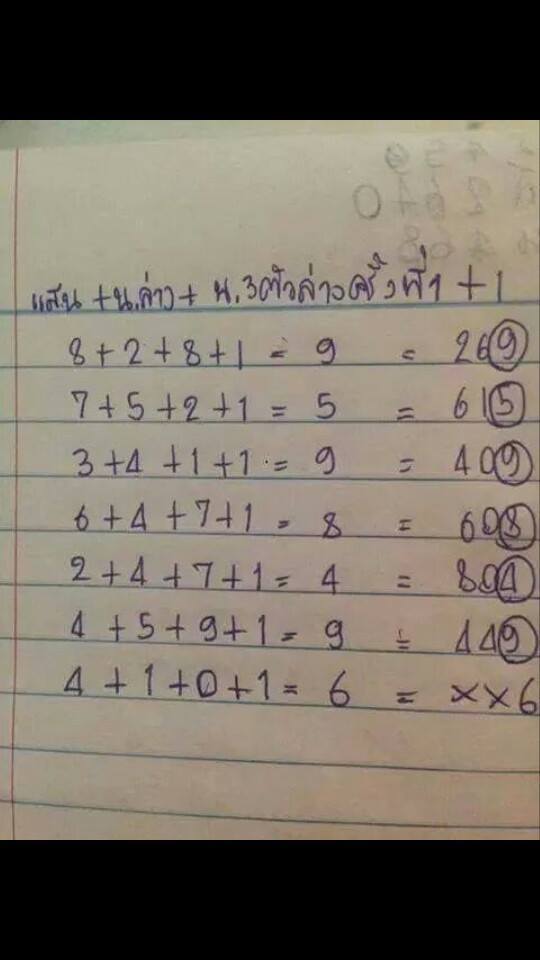 แสน + น.ล่าง + น.3ตัวล่างครั้งที่1 + 1
8 + 2 + 8 + 1 = 9 = 269
7 + 5 + 2 + 1 = 5 = 615
3 + 4 + 1 + 1 = 9 = 409
6 + 4 + 7 + 1 = 8 = 608
2 + 4 + 7 + 1 = 4 = 804
4 + 5 + 9 + 1 = 9 = 449
4 + 1 + 0 + 1 = 6 = ××6